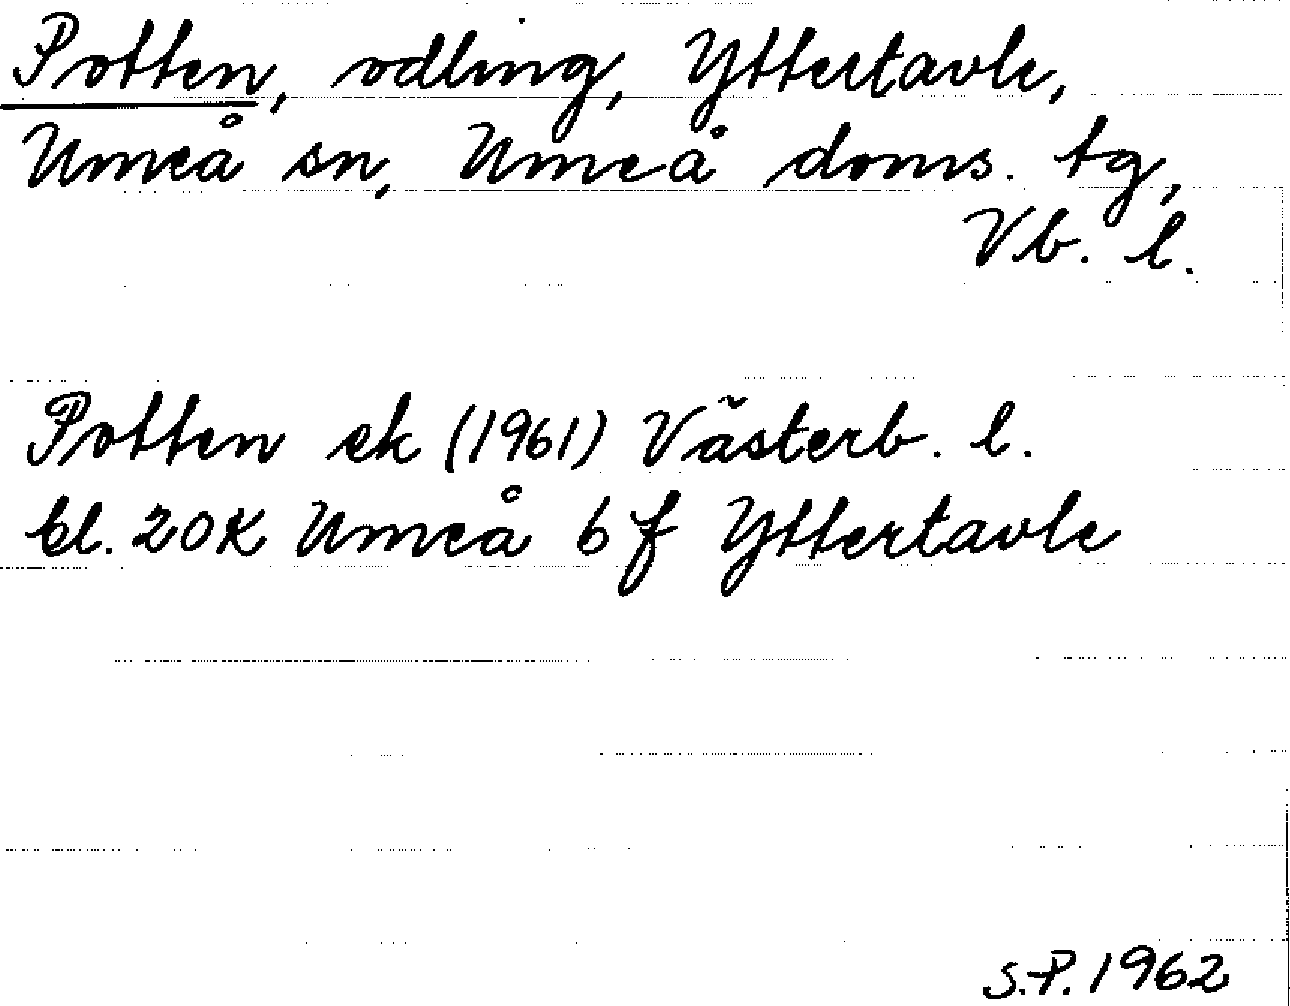 Potten, odling, Yttertavle,
Umeå sn, Umeå doms. tg,
Vb. l.
Potten ek (1961) Västerb. l.
bl. 20K Umeå 6 f Yttertavle
S.P. 1962